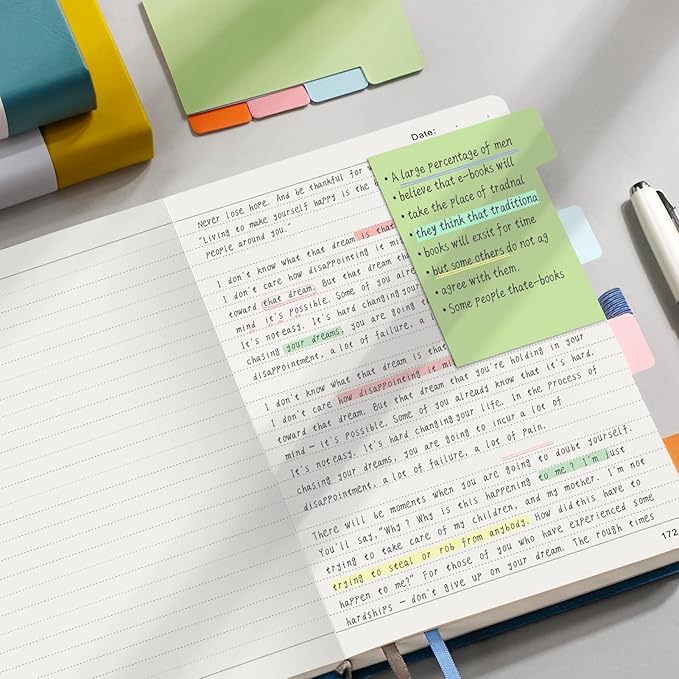 Date:
Never lose hope. And be thankful for
"Living to make yourself happy is the
people around you."
I don't know what that dream is that
I don't care how disappointing it
toward that dream. But that dream
mind it's possible. Some of you
It's not easy. It's hard changing your
chasing your dreams, you are going
disappointment, a lot of failure, a
I don't know what that dream is that
I don't care how disappointing it
toward that dream. But that dream that you're holding in your
mind — it's possible. Some of you already know that it's hard.
It's not easy. It's hard changing your life. In the process of
chasing your dreams, you are going to incur a lot of
disappointment, a lot of failure, a lot of pain.
There will be moments when you are going to doubt yourself.
You'll say, "Why? Why is this happening to me? I'm just
trying to take care of my children, and my mother. I'm not
trying to steal or rob from anybody. How did this have to
happen to me?" For those of you who have experienced some
hardships — don't give up on your dream. The rough times
172
• A large percentage of men
• believe that e-books will
• take the place of tradnal
• they think that traditiona
• books will exsit for time
• but some others do not ag
• agree with them.
• Some people thate-books